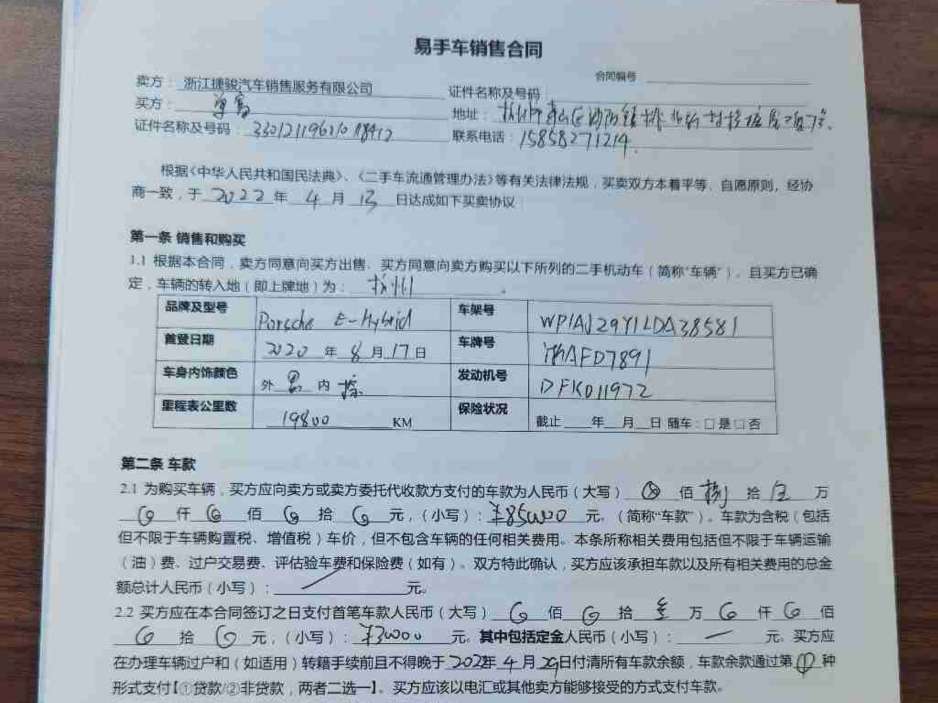 易手车销售合同
合同编号
卖方：浙江捷骏汽车销售服务有限公司 证件名称及号码
买方： 地址：
证件名称及号码： 联系电话：15858271214
根据《中华人民共和国民法典》、《二手车流通管理办法》等有关法律法规，买卖双方本着平等、自愿原则，经协
商一致，于 2022 年 4 月 13 日达成如下买卖协议
第一条 销售和购买
1.1 根据本合同，卖方同意向买方出售、买方同意向卖方购买以下所列的二手机动车（简称"车辆"）。且买方已确
定，车辆的转入地（即上牌地）为：杭州。
品牌及型号 Porsche E-Hybrid 车架号 WP1AJ29Y1LDA38581
首登日期 2020 年 8 月 17 日 车牌号 浙AFD7891
车身内饰颜色 外 黑 内 棕 发动机号 DFK011972
里程表公里数 19800 KM 保险状况 截止 年 月 日 随车：□是□否
第二条 车款
2.1 为购买车辆，买方应向卖方或卖方委托代收款方支付的车款为人民币（大写） 佰 捌 拾 伍 万
仟 佰 拾 元，（小写）：¥850000 元。（简称"车款"）。车款为含税（包括
但不限于车辆购置税、增值税）车价，但不包含车辆的任何相关费用。本条所称相关费用包括但不限于车辆运输
（油）费、过户交易费、评估验车费和保险费（如有）。双方特此确认，买方应该承担车款以及所有相关费用的总金
额总计人民币（小写）： 元。
2.2 买方应在本合同签订之日支付首笔车款人民币（大写） 佰 拾 万 仟 佰
拾 元，（小写）： 元。其中包括定金人民币（小写）：一 元。买方应
在办理车辆过户和（如适用）转籍手续前且不得晚于 2022年 4 月 29日付清所有车款余额，车款余款通过第 ① 种
形式支付【①贷款/②非贷款，两者二选一】。买方应该以电汇或其他卖方能够接受的方式支付车款。